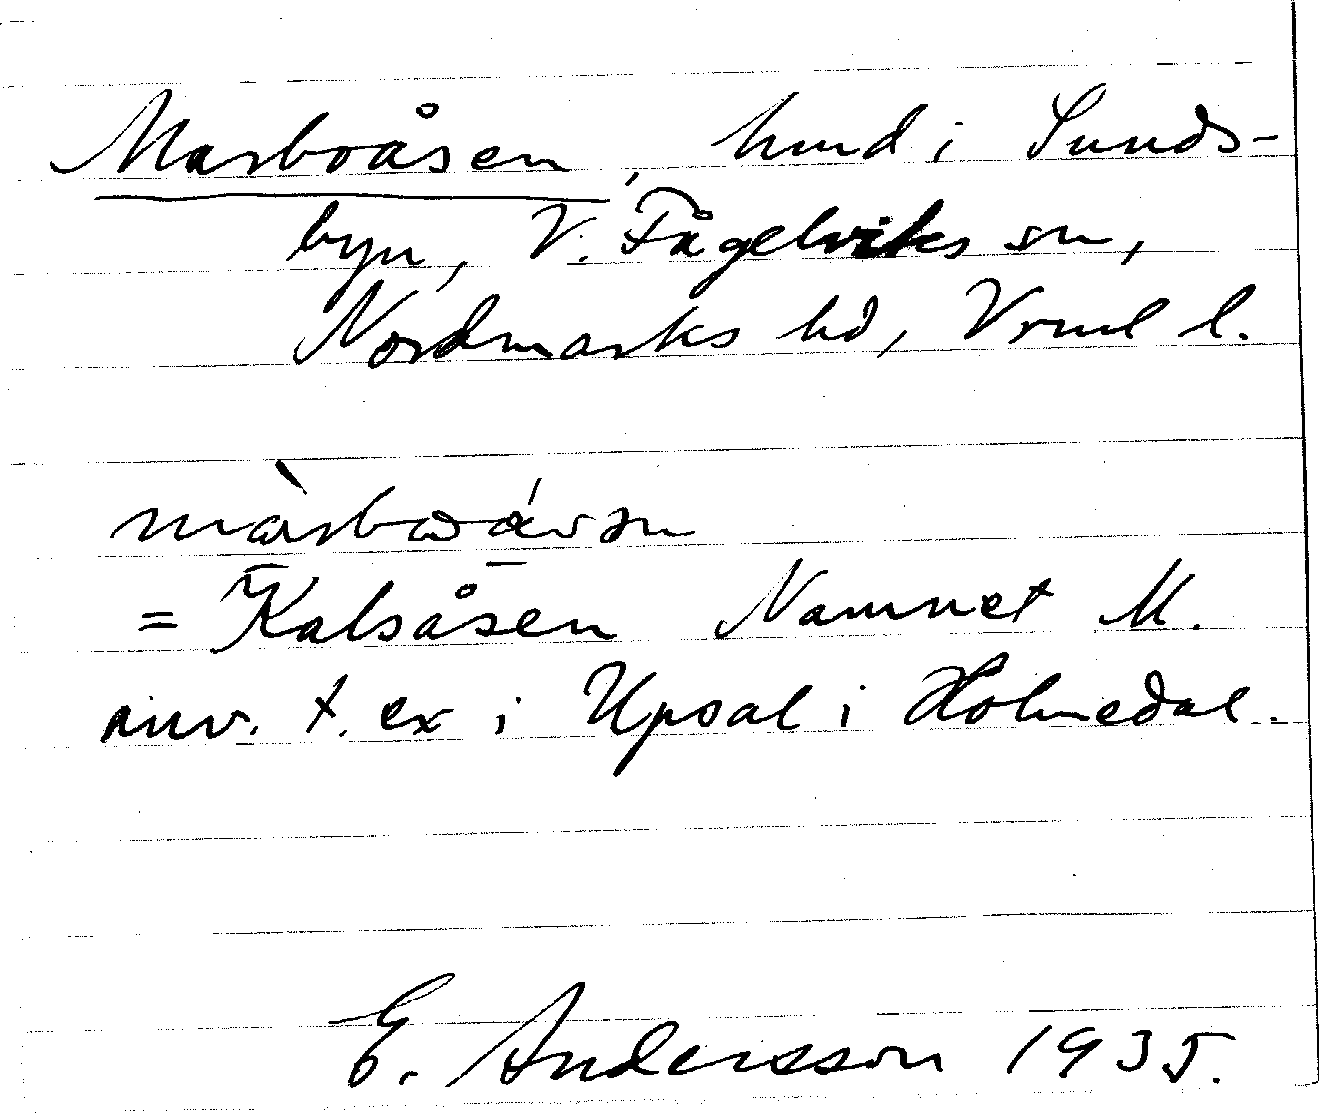 Marboåsen, hmd i Sunds-
byn, V. Fågelviks sn,
Nordmarks hd, Vrml l.
màrboåvsn
= Kalsåsen Namnet M.
anv. t. ex i Upsal i Holmedal.
E. Andersson 1935.